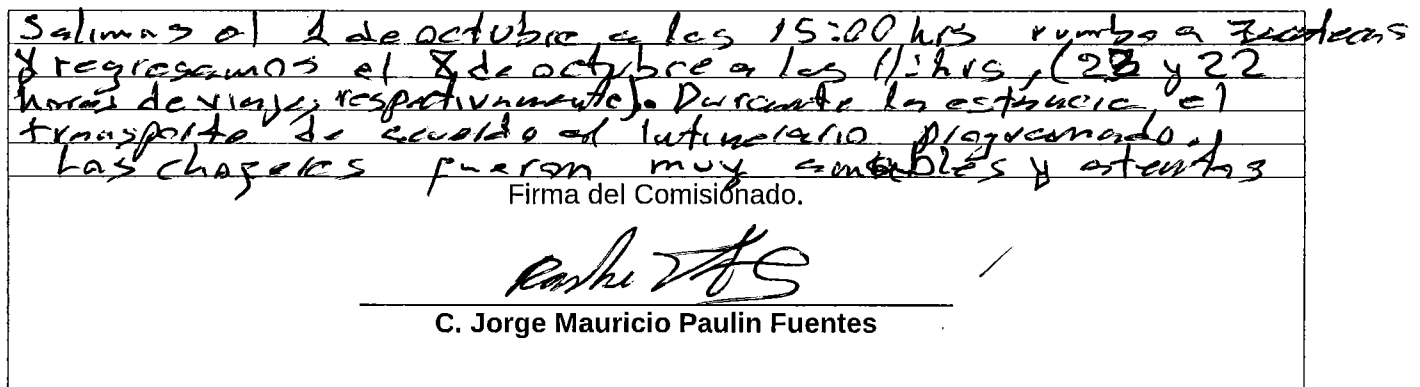 Salimos el 1 de octubre a las 15:00 hrs rumbo a Zacatecas
y regresamos el 8 de octubre a las 11:hrs, (23 y 22
horas de viaje, respectivamente). Durante la estancia, el
transporte de acuerdo al programado.
Los choferes fueron muy amables y atentos
Firma del Comisionado.
C. Jorge Mauricio Paulin Fuentes